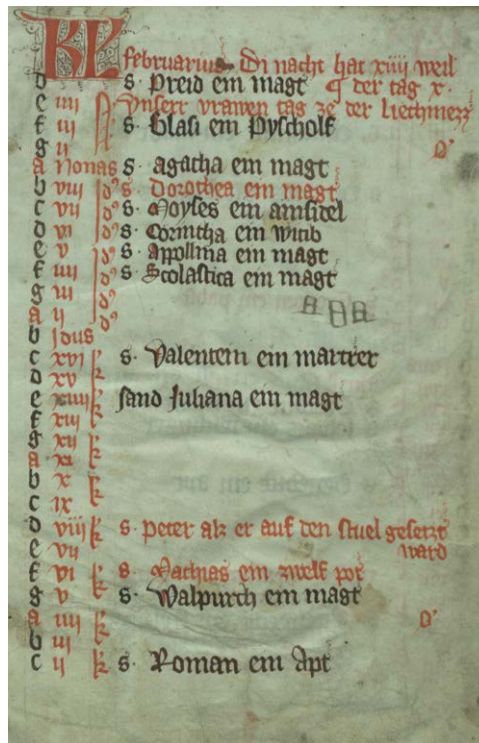 KL februarius Di nacht hat xiiii weil
d s. Preid ein magt ¶ der tag x.
e iiii N Vnserr vrawen tag ze der liechmezz
f iii s. Blasi ein Pyscholf
g ii
a Nonas s. agatha ein magt
b viii id9 s. Dorothea ein magt
c vii id9 s. Moyses ein ainsidel
d vi id9 s. Corintha ein witib
e v id9 s. Appollina ein magt
f iiii id9 s. Scolastica ein magt
g iii id9
a ii id9
b Idus
c xvi k s. Valentein ein martrer
d xv k
e xiiii k sand Juliana ein magt
f xiii k
g xii k
a xi k
b x k
c ix k
d viii k s. Peter alz er auf den stuel gesetzt
e vii ward
f vi k s. Mathias ein zwelf pot
g v k s. Walpurch ein magt
a iiii k D'
b iii k
c ii k s. Roman ein Apt